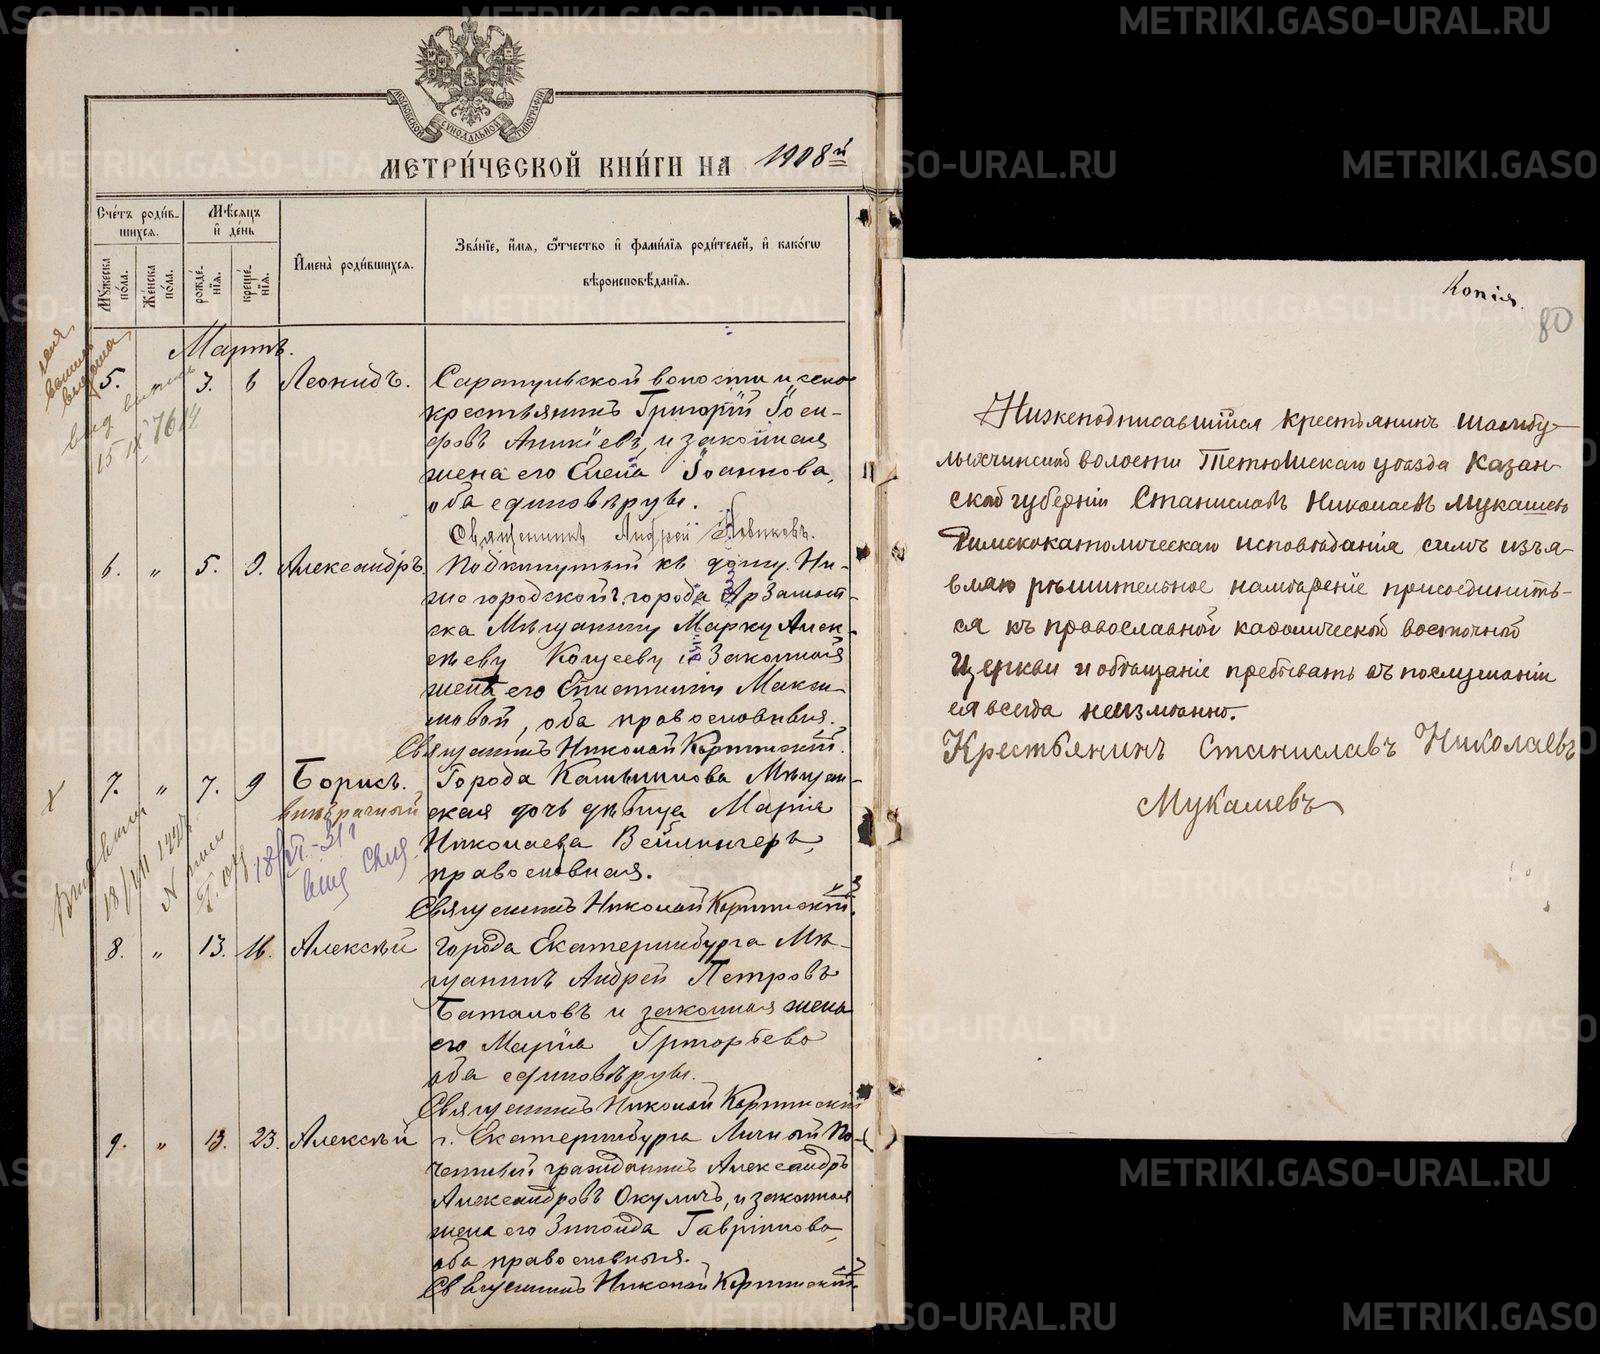 МОСКОВСКОЙ СѴНОДАЛЬНОЙ ТИПОГРАФІИ
МЕТРИ́ЧЕСКОЙ КНИ́ГИ НА 1908й
Сче́тъ роди́вшихся.
Мѣ́сяцъ и де́нь
Му́жеска по́ла.
Же́нска по́ла.
рожде́нія.
креще́нія.
Имена̀ роди́вшихся.
Зва́ніе, и́мя, ѻ́тчество и фами́лія роди́телей, и како́гѡ
вѣроисповѣ́данія.
Мартъ.
5. " 3. 6 Леонидъ. Сарапульской волости и села
крестьянинъ Григорій Іоси-
фовъ Аникіевъ, и законная
жена его Елена Іоаннова,
оба единовѣрцы.
Священникъ Андрей
6. " 5. 9. Александръ. Подкинутый къ дому Ни-
жегородской г. города Арзамаст-
ска Мѣщанину Марку Алек-
сѣеву Кощееву и Законной
женѣ его Епистиміи Макси-
мовой, оба православныя.
Священникъ Николай
7. " 7. 9 Борисъ. Города Камышлова Мѣщан-
внѣбрачный
ская дочь дѣвица Марія
Николаева Вейлингеръ,
православная.
Священникъ Николай
8. " 13. 16. Алексѣй города Екатеринбурга Мѣ-
щанинъ Андрей Петровъ
Баталовъ и законная жена
его Марія Григорьева
оба единовѣрцы.
Священникъ Николай
9. " 13. 23. Алексѣй г. Екатеринбурга Личный По-
четный гражданинъ Александръ
Александровъ Окуличъ, и законная
жена его Зинаида Гавріилова,
оба православныя.
Священникъ Николай
Копія.
80
Нижеподписавшійся крестьянинъ Шамбу-
лыхчинской волости Тетюшскаго уѣзда Казан-
ской губерніи Станиславъ Николаевъ Мукашевъ
Римскокатолическаго исповѣданія симъ изъя-
вляю рѣшительное намѣреніе присоединить-
ся къ православной каѳолической восточной
Церкви и обѣщаніе пребывать въ послушаніи
ея всегда неизмѣнно.
Крестьянинъ Станиславъ Николаевъ
Мукашевъ
METRIKI.GASO-URAL.RU